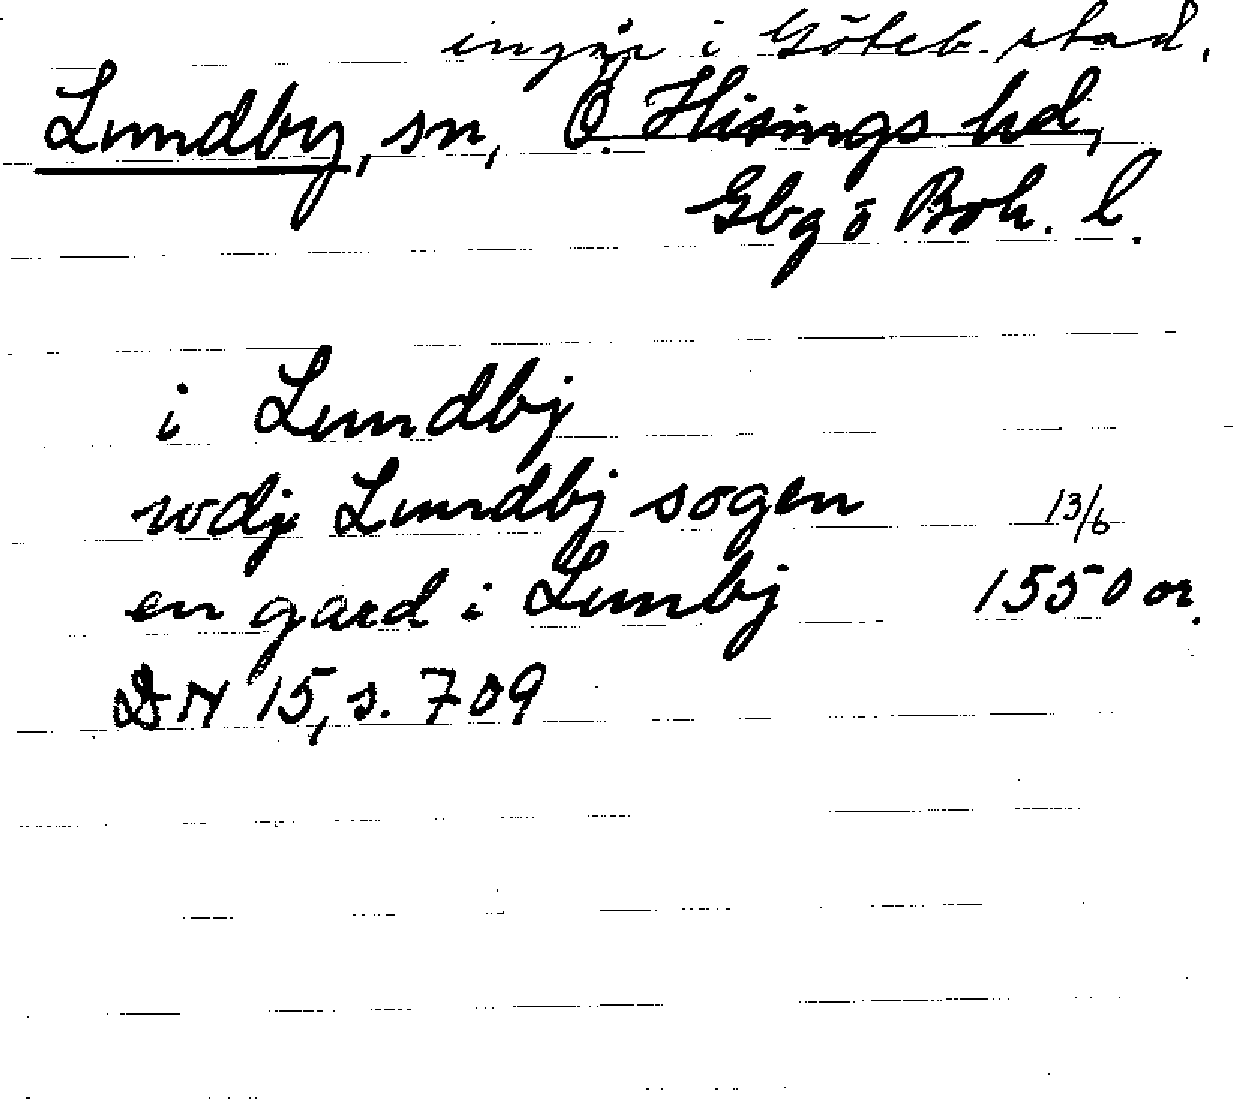 ingår i Göteb. stad.
Lundby, sn, Ö. Hisings hd,
Gbg o Boh. l.
i Lundbÿ
wdj Lundbÿ sogen 13/6
en gard i Lunbÿ 1550 or.
DN 15, s. 709